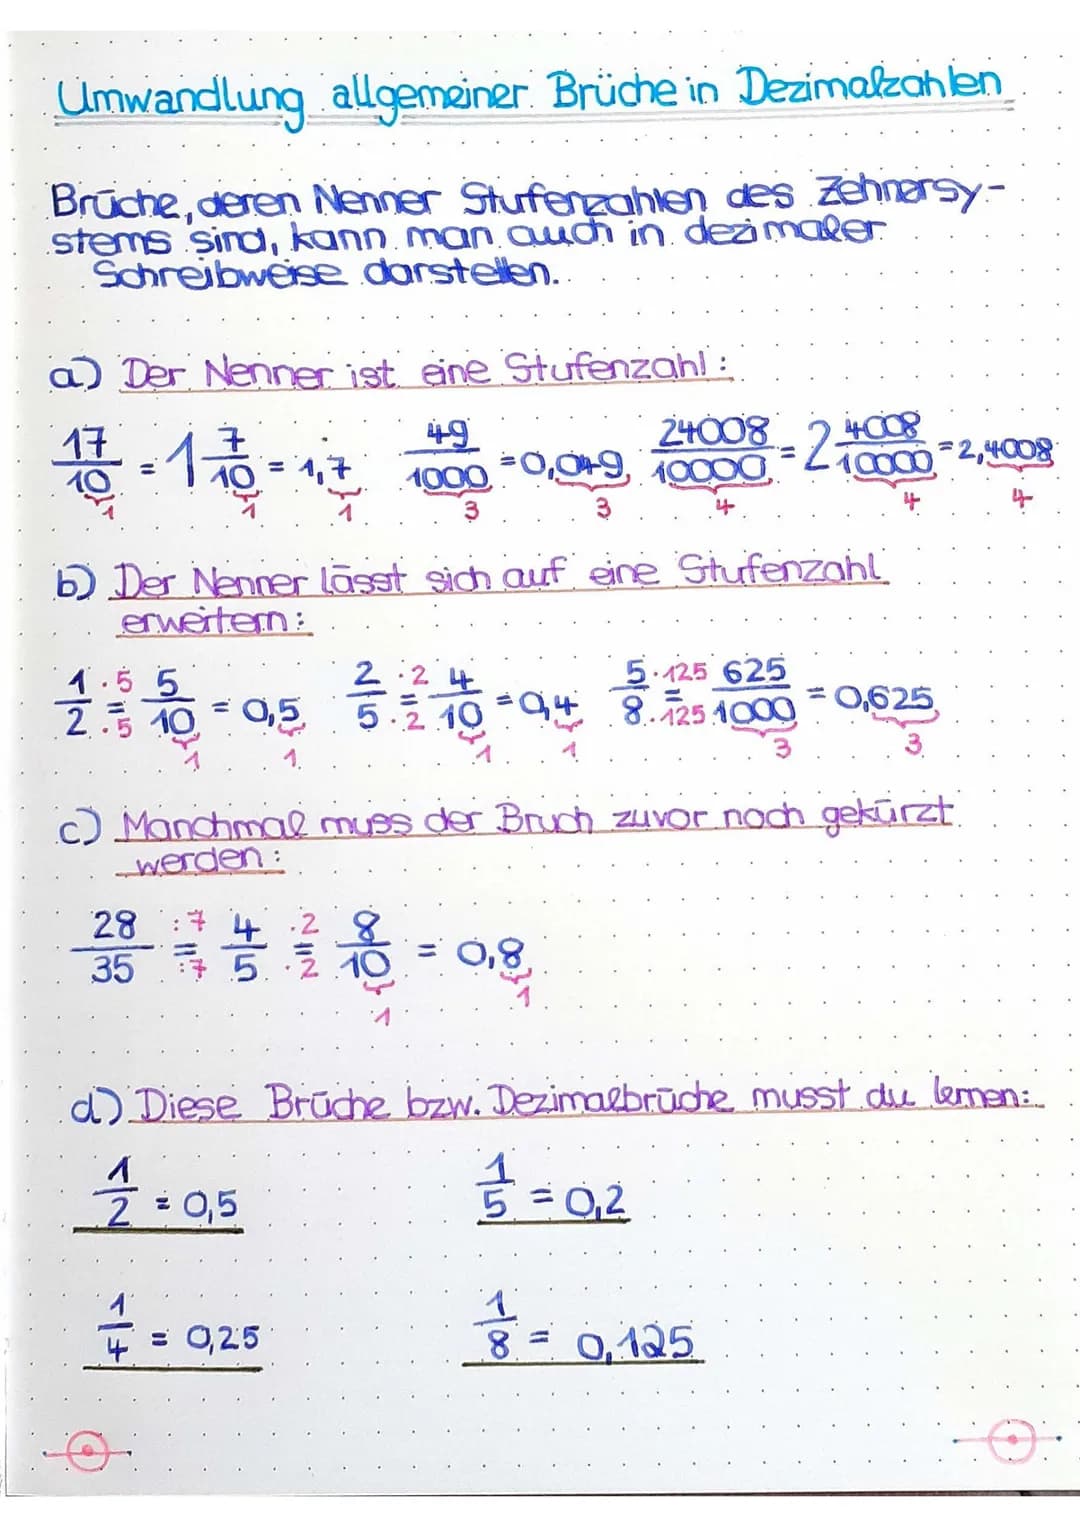 Umwandlung allgemeiner Brüche in Dezimalzahlen
Brüche, deren Nenner Stufenzahlen des Zehnersy-
stems sind, kann man auch in dezimaler
Schreibweise darstellen.
a) Der Nenner ist eine Stufenzahl:
17/10 = 1 7/10 = 1,7 49/1000 = 0,049 24008/10000 = 2 4008/10000 = 2,4008
1 1 1 3 3 4 4 4
b) Der Nenner lässt sich auf eine Stufenzahl
erweitern:
1/2 ·5 = ·5 5/10 = 0,5 2/5 ·2 = ·2 4/10 = 0,4 5/8 ·125 = ·125 625/1000 = 0,625
1 1 1 1 3 3
c) Manchmal muss der Bruch zuvor noch gekürzt
werden:
28/35 :7 = :7 4/5 ·2 = ·2 8/10 = 0,8
1 1
d) Diese Brüche bzw. Dezimalbrüche musst du lernen:
1/2 = 0,5 1/5 = 0,2
1/4 = 0,25 1/8 = 0,125